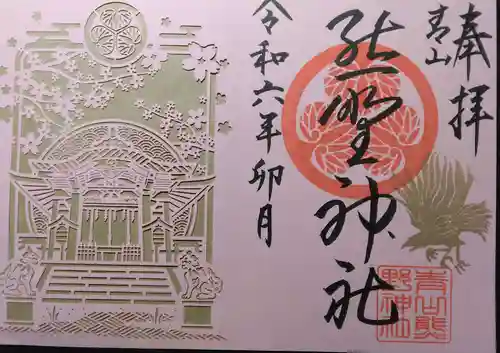 奉拝
青山
熊野神社
令和六年卯月
青山熊
野神社